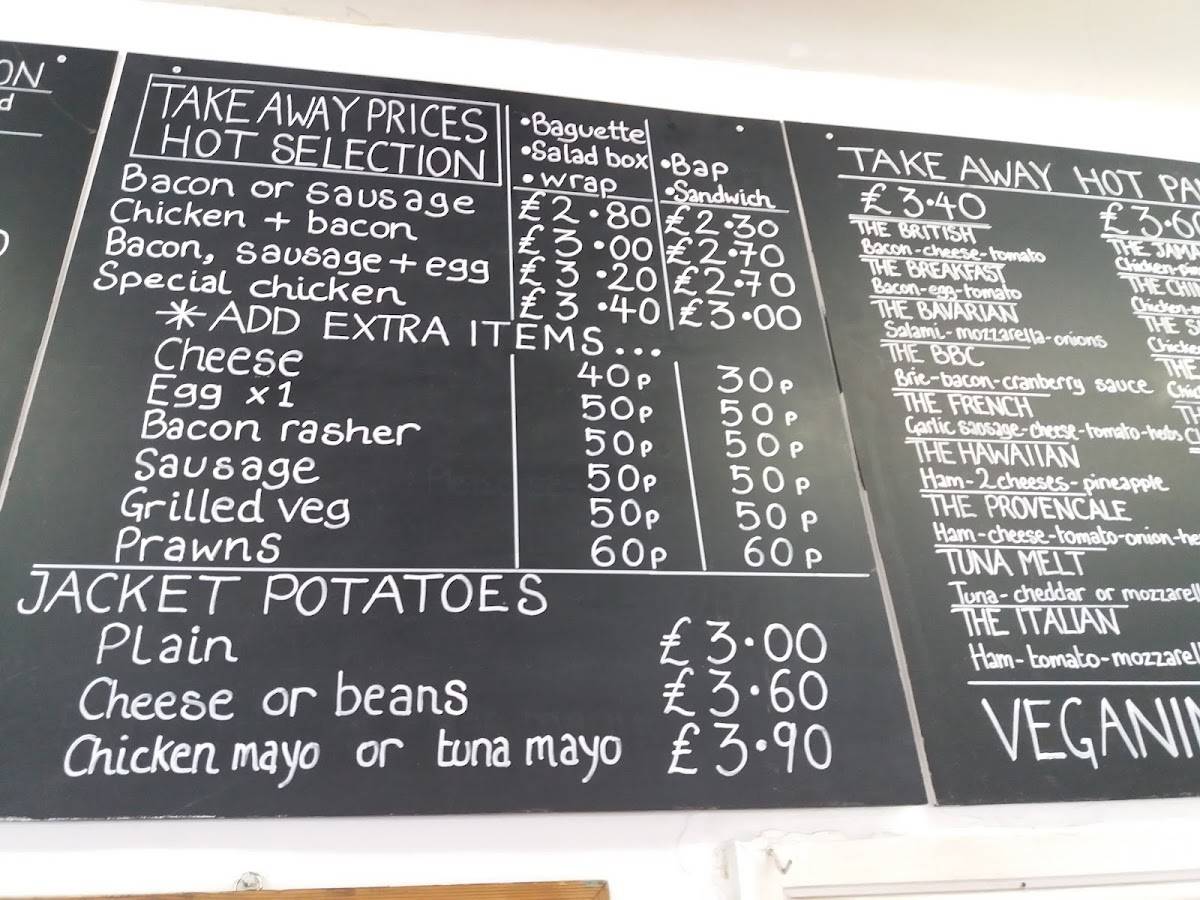 ON
d
TAKE AWAY PRICES
HOT SELECTION
•Baguette
•Salad box
•wrap
•Bap
•Sandwich
Bacon or sausage £2.80 £2.30
Chicken + bacon £3.00 £2.70
Bacon, sausage + egg £3.20 £2.70
Special chicken £3.40 £3.00
*ADD EXTRA ITEMS...
Cheese 40p 30p
Egg x1 50p 50p
Bacon rasher 50p 50p
Sausage 50p 50p
Grilled veg 50p 50p
Prawns 60p 60p
JACKET POTATOES
Plain £3.00
Cheese or beans £3.60
Chicken mayo or tuna mayo £3.90
TAKE AWAY HOT PA
£3.40
THE BRITISH
Bacon-cheese-tomato
THE BREAKFAST
Bacon-egg-tomato
THE BAVARIAN
Salami-mozzarella-onions
THE BBC
Brie-bacon-cranberry sauce
THE FRENCH
Garlic sausage-cheese-tomato-herbs
THE HAWAIIAN
Ham-2cheeses-pineapple
THE PROVENCALE
Ham-cheese-tomato-onion-he
TUNA MELT
Tuna-cheddar or mozzarell
THE ITALIAN
Ham-tomato-mozzarel
£3.60
THE JAMA
Chicken-pi
THE CHI
Chicken-
THE S
Chicke
THE
Chic
T
C
VEGANI